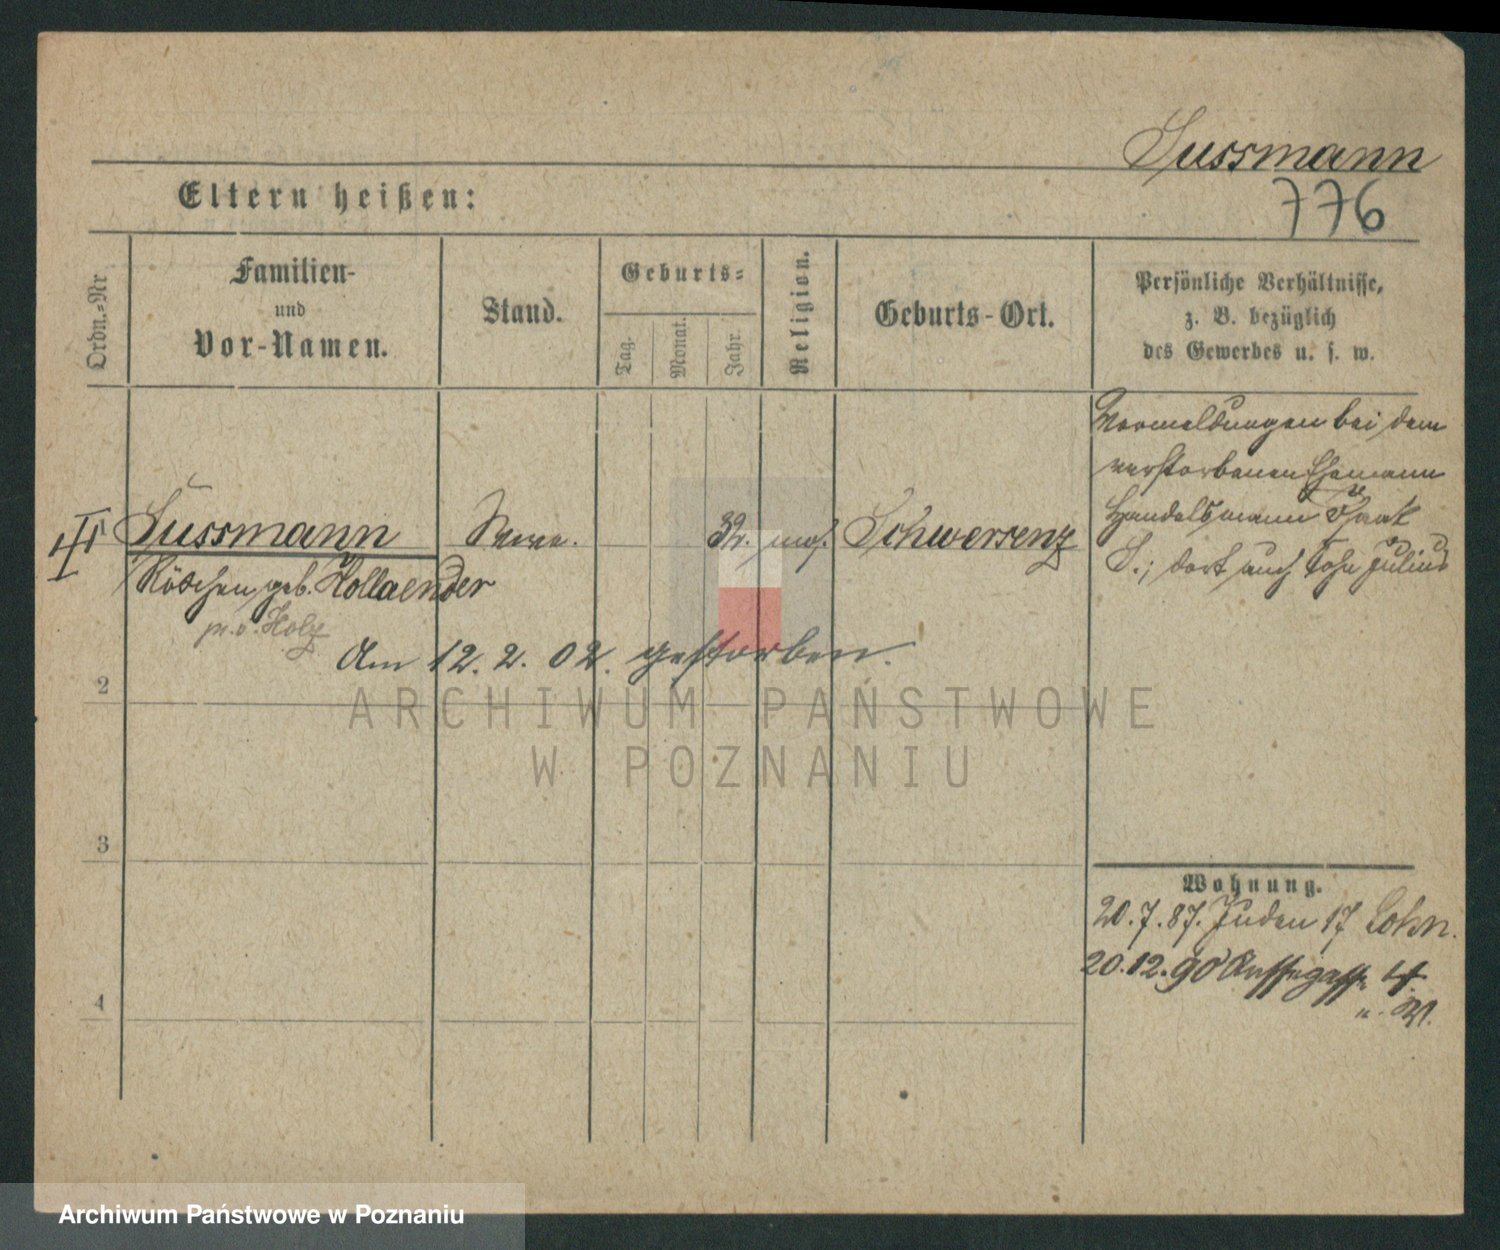 Sussmann
776
Eltern heißen:
Ordn.-Nr.
Familien-
und
Vor-Namen.
Stand.
Geburts-
Tag.
Monat.
Jahr.
Religion.
Geburts-Ort.
Persönliche Verhältnisse,
z. B. bezüglich
des Gewerbes u. s. w.
Vormeldungen bei dem
verstorbenen Ehemann
Handelsmann Isaak
S.; dort auch Sohn Julius
Sussmann
Wwe.
32.
mos.
Schwersenz
Röschen geb. Hollaender
Am 12. 2. 02. gestorben.
2
3
4
ARCHIWUM PAŃSTWOWE
W POZNANIU
Wohnung.
20.7.87. Juden 17 Cohn.
20.12.90 4.
Archiwum Państwowe w Poznaniu